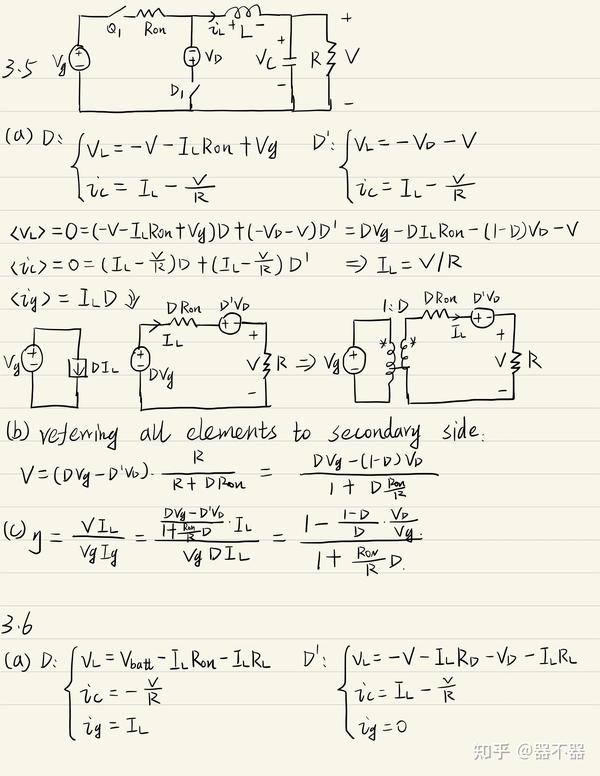 3.5
Q₁ Ron iL + L -
Vg VD + VC - R + V -
D₁
(a) D: { VL = -V - ILRon + Vg D': { VL = -VD - V
ic = IL - V/R ic = IL - V/R
<VL> = 0 = (-V-ILRon+Vg)D + (-VD-V)D' = DVg - DILRon - (1-D)VD - V
<ic> = 0 = (IL - V/R)D + (IL - V/R)D' ⇒ IL = V/R
<ig> = ILD ⇓
DRon D'VD 1:D DRon D'VD
Vg DIL DVg IL + V - R ⇒ Vg * * IL + V - R
(b) referring all elements to secondary side:
V = (DVg - D'VD) · R/(R + DRon) = (DVg - (1-D)VD)/(1 + D Ron/R)
(c) η = VIL/VgIg = ((DVg - D'VD)/(1 + Ron/R D) · IL)/(Vg DIL) = (1 - (1-D)/D · VD/Vg)/(1 + Ron/R D).
3.6
(a) D: { VL = Vbatt - ILRon - ILRL D': { VL = -V - ILRD - VD - ILRL
ic = -V/R ic = IL - V/R
ig = IL ig = 0
知乎 @器不器